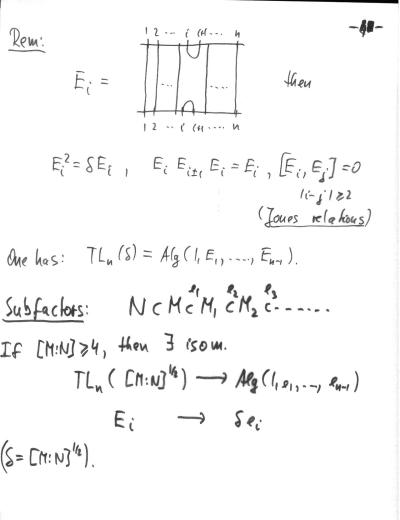 Rem:
1 2 ... i i+1 ... n
E_i = 
... ...
then
1 2 ... i i+1 ... n
E_i^2 = δE_i , E_i E_{i±1} E_i = E_i , [E_i, E_j] = 0
|i-j| ≥ 2
(Jones relations)
One has: TL_n(δ) = Alg(1, E_1, ...., E_{n-1}).
Subfactors: N ⊂ M ⊂^{e_1} M_1 ⊂^{e_2} M_2 ⊂^{e_3} ......
If [M:N] ≥ 4, then ∃ isom.
TL_n([M:N]^{1/2}) → Alg(1, e_1, ..., e_{n-1})
E_i → δe_i
(δ = [M:N]^{1/2}).